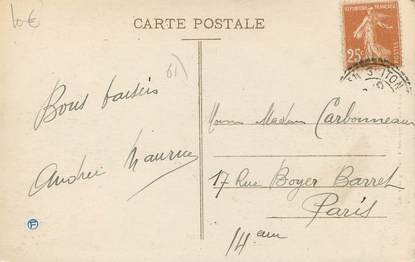 10€
CARTE POSTALE
REPUBLIQUE FRANÇAISE
25c
61)
Bons baisers
Andrée Maurice
Madame Carbonneaux
17 Rue Boyer Barret
Paris
14 em
F